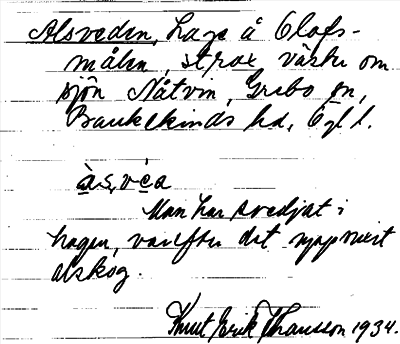 Alsveden, hage å Olofs-
målen, strax väster om
sjön Nåtvin, Grebo sn,
Bankekinds hd, Ögl.
às, véa
Man har svedjat i
hagen, varefter det uppvuxit
alskog.
Knut Erik Thomsson 1934.